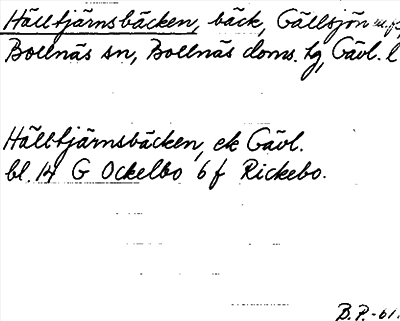 Hälltjärnsbäcken, bäck, Gällsjön
Bollnäs sn, Bollnäs doms. hg, Gävl. l
Hälltjärnsbäcken, ek Gävl.
bl. 14 G Ockelbo 6 f Rickebo.
B.P.-61.